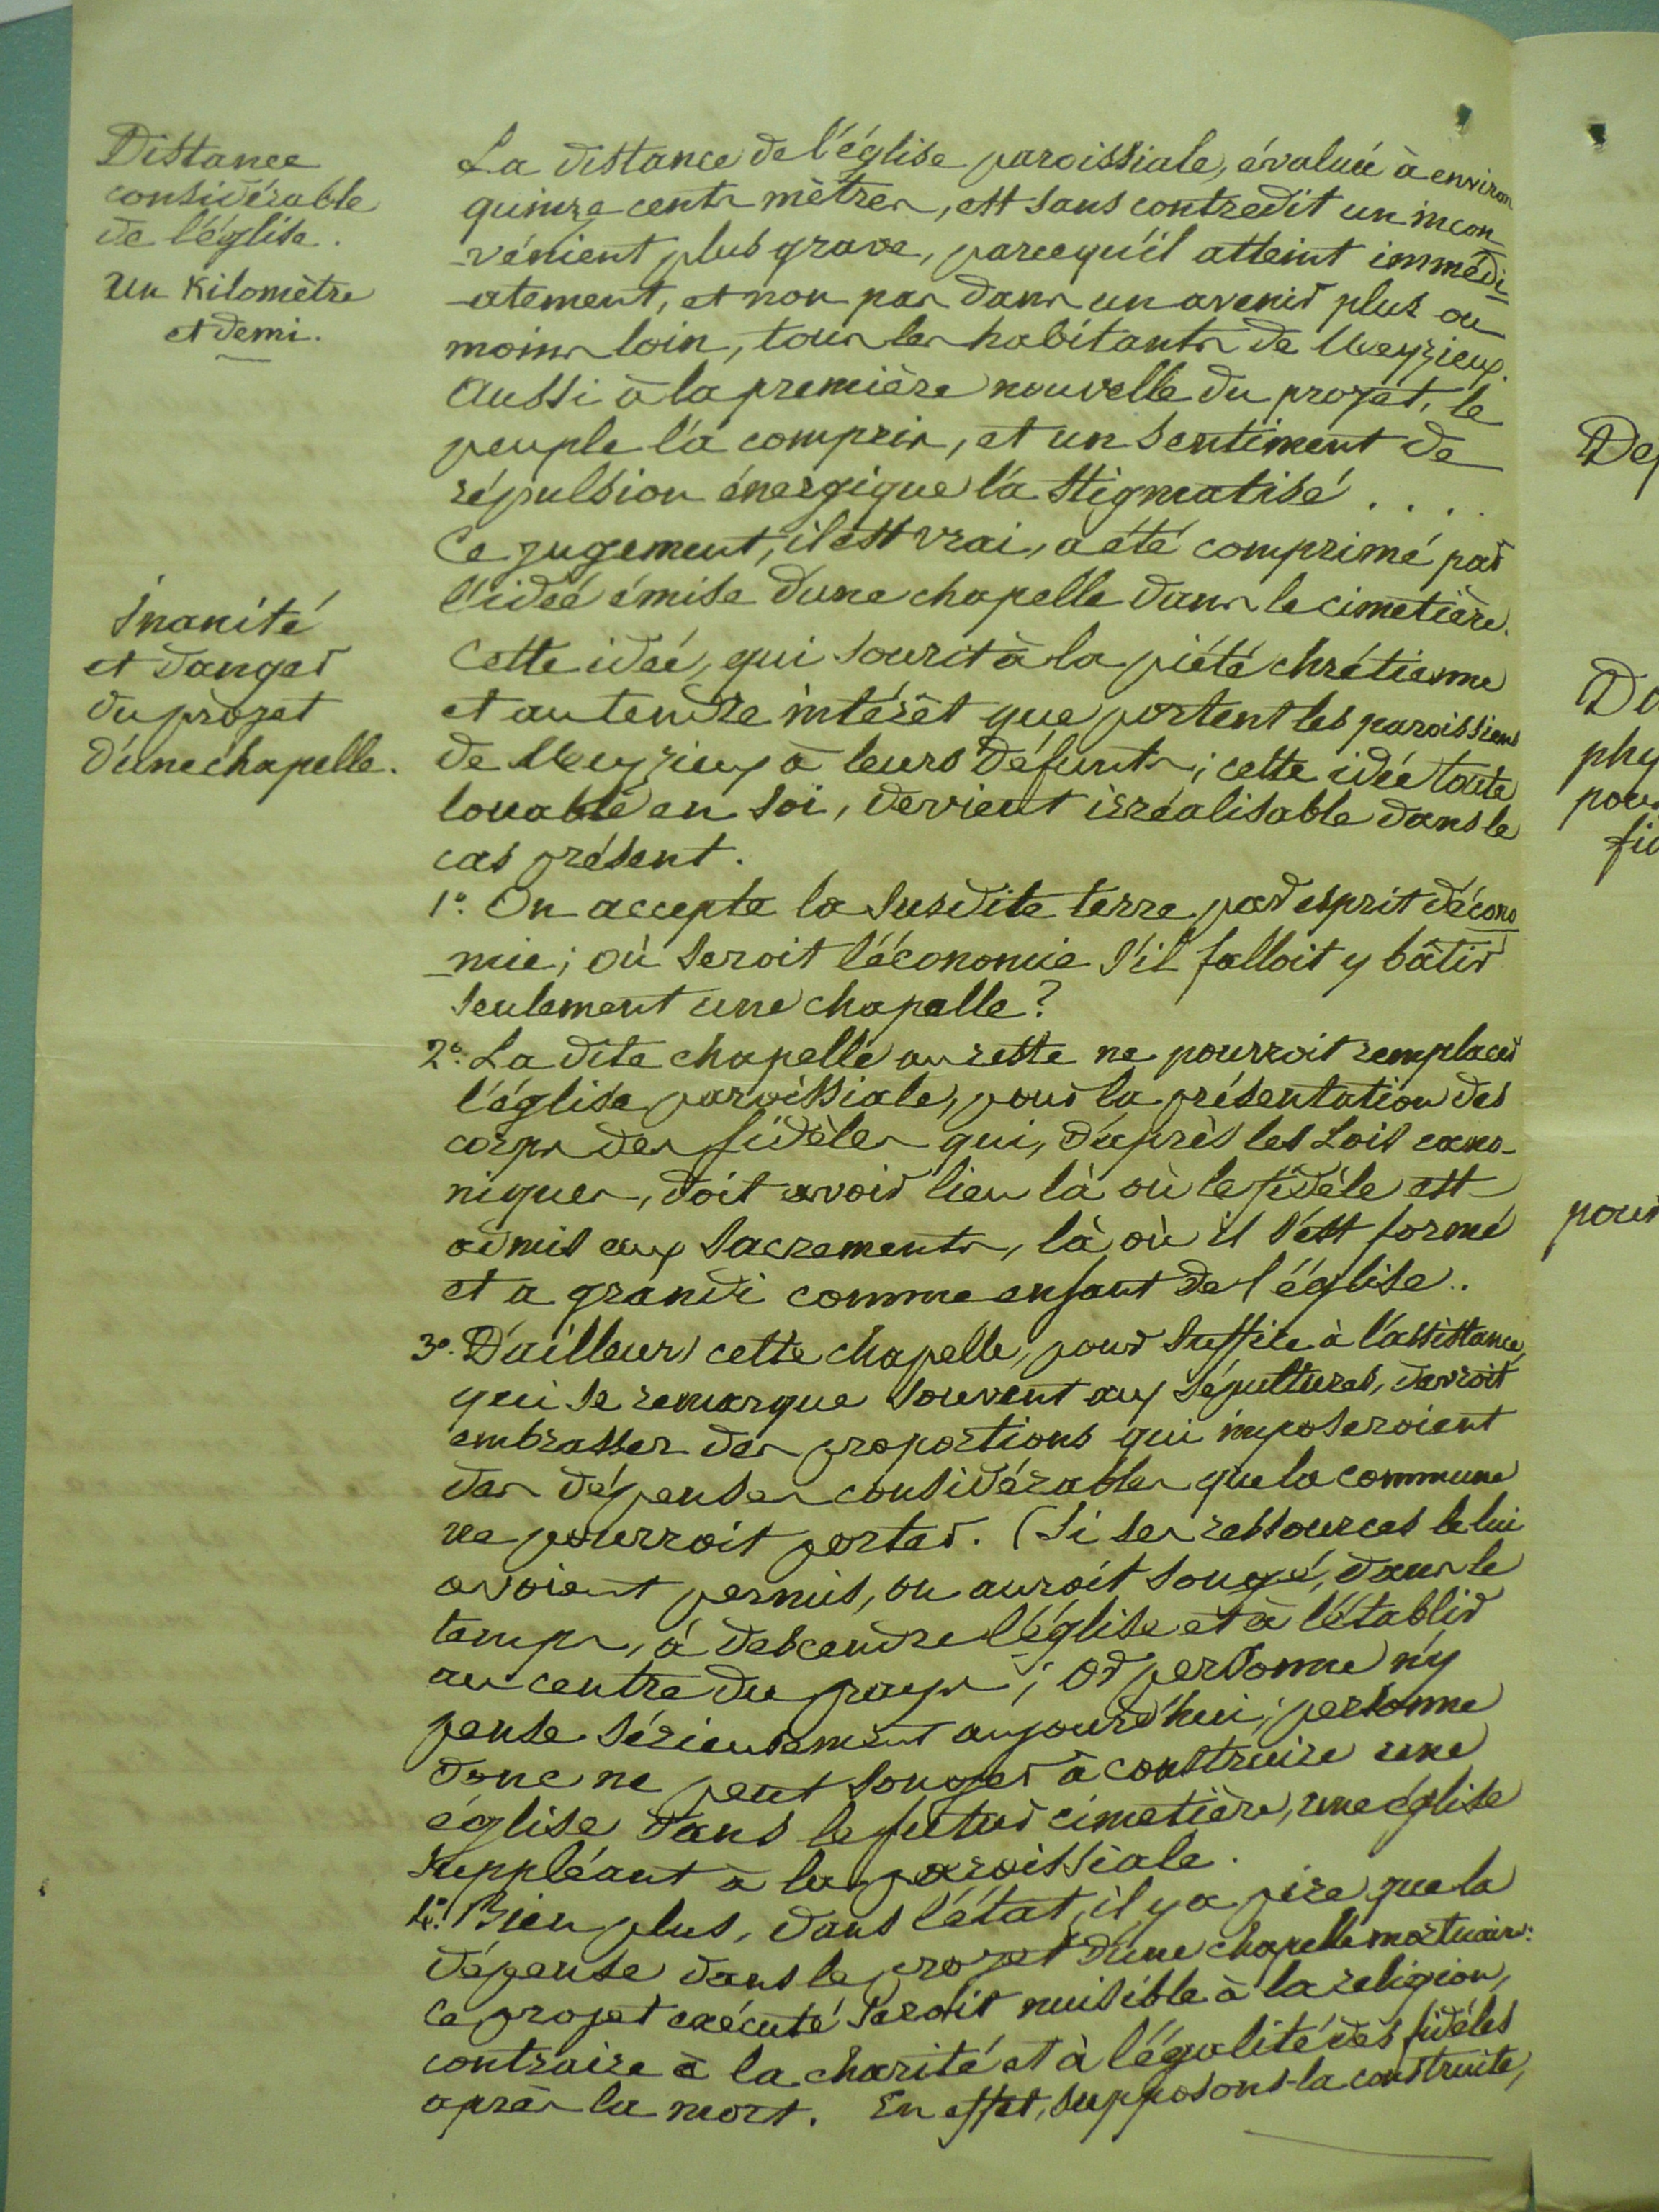 Distance
considérable
de l'église.
Un Kilomètre
et demi.
La distance de l'église paroissiale, évaluée à environ
quinze cents mètres, est sans contredit un incon
-vénient plus grave, parcequ'il atteint immédi-
-atement, et non pas dans un avenir plus ou
moins loin, tous les habitants de Meyzieux.
Aussi à la première nouvelle du projet, le
peuple l'a compris, et un sentiment de
répulsion énergique l'a stigmatisé . . . .
Ce jugement, il est vrai, a été comprimé par
l'idée émise d'une chapelle dans le cimetière.
Inanité
et danger
du projet
d'une chapelle.
Cette idée, qui sourit à la piété chrétienne
et au tendre intérêt que portent les paroissiens
de Meyzieux à leurs défunts; cette idée toute
louable en soi, devient irréalisable dans le
cas présent.
1º. On accepte la susdite terre par esprit d'écono
-mie; où seroit l'économie s'il falloit y bâtir
seulement une chapelle?
2º. La dite chapelle au reste ne pourroit remplacer
l'église paroissiale, pour la présentation des
corps des fidèles qui, d'après les Lois cano-
niques, doit avoir lieu là où le fidèle est
admis aux Sacrements, là où il s'est formé
et a grandi comme enfant de l'église..
3º. D'ailleurs cette chapelle, pour suffire à l'assistance,
qui se remarque souvent aux sépultures, devroit
embrasser des proportions qui imposeroient
des dépenses considérables que la commune
ne pourroit porter. (Si ses ressources le lui
avoient permis, on auroit songé, dans le
temps, à descendre l'église et à l'établir
au centre du pays; Or personne n'y
pense sérieusement aujourd'hui; personne
donc ne peut songer à construire une
église dans le futur cimetière, une église
suppléant à la paroissiale.
4º. Bien plus, dans l'état, il y a pire que la
dépense dans le projet d'une chapelle mortuaire:
ce projet exécuté seroit nuisible à la religion,
contraire à la charité et à l'égalité des fidèles
après la mort. En effet, supposons-la construite,